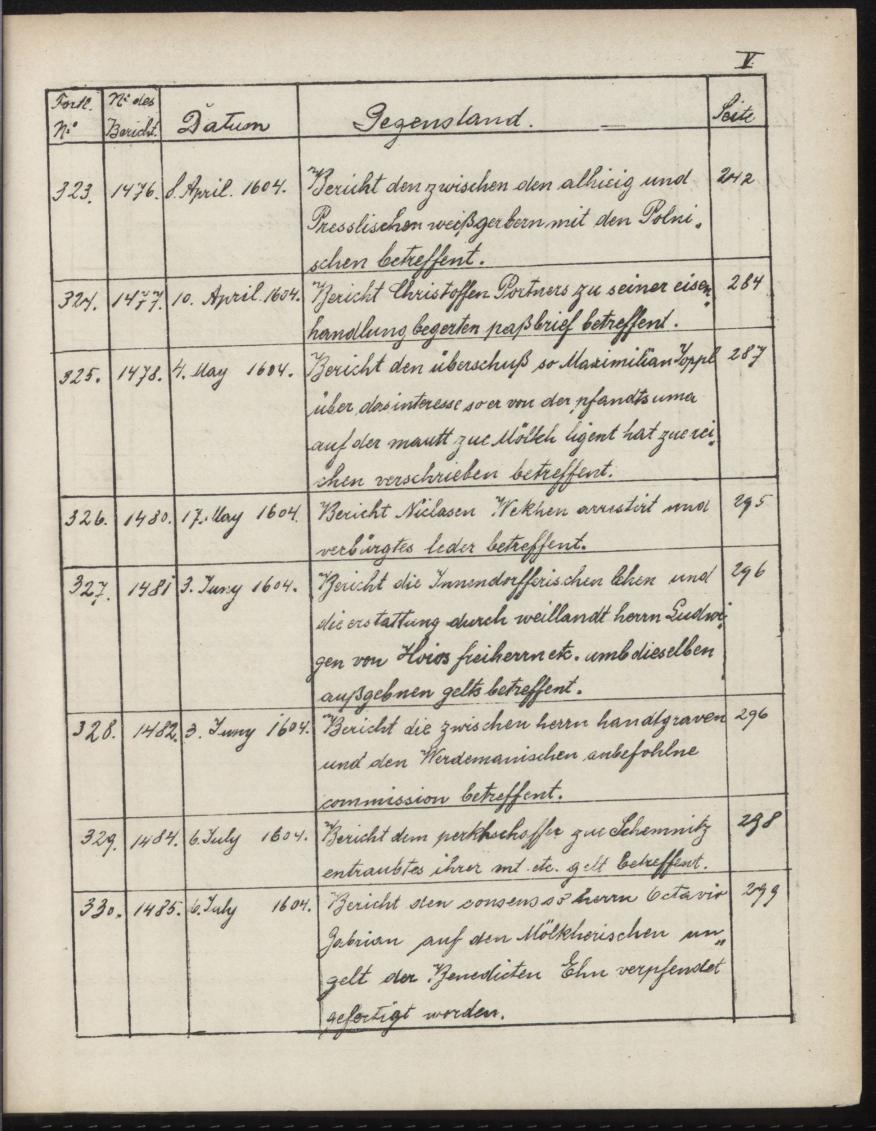 V
Fortl. N° | N° des Bericht. | Datum | Gegenstand. | Seite
323. | 1476. | 8. April. 1604. | Bericht den zwischen den alhieig und | 242
Presslischen weißgerbern mit den Polni„
schen betreffent.
324. | 1477. | 10. April. 1604. | Bericht Christoffen Portners zu seiner eisen„ | 284
handlung begerten paßbrief betreffent.
325. | 1478. | 4. May 1604. | Bericht den überschuß so Maximilian | 287
über das interesse so er von der pfandtsuma
auf der mautt zue Mölkh ligent hat zue rei„
chen verschrieben betreffent.
326. | 1480. | 17. May 1604. | Bericht Niclasen Wekhen arrestirt und | 295
verbürgtes leder betreffent.
327. | 1481 | 3. Juny 1604. | Bericht die Innendorfferischen lehen und | 296
die erstattung durch weillandt herrn Ludwi„
gen von Hoios freiherrn etc. umb dieselben
außgebnen gelts betreffent.
328. | 1482. | 3. Juny 1604. | Bericht die zwischen herrn handtgraven | 296
und den Werdemanischen anbefohlne
commission betreffent.
329. | 1484. | 6. July 1604. | Bericht dem zue Schemnitz | 298
entraubtes ihrer mt. etc. gelt betreffent.
330. | 1485. | 6. July 1604. | Bericht den consens so herrn Octavio | 299
Gabrian auf den Mölkherischen un„
gelt der Benedicten Ehn verpfendet
gefertigt worden.